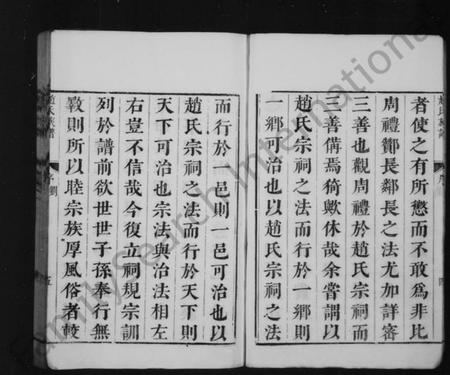 者使之有所懲而不敢為非比
周禮酇長鄰長之法尤加詳審
三善也觀周禮於趙氏宗祠而
三善備焉猗歟休哉余嘗謂以
趙氏宗祠之法而行於一鄉則
一鄉可治也以趙氏宗祠之法
而行於一邑則一邑可治也以
趙氏宗祠之法而行於天下則
天下可治也宗法與治法相左
右豈不信哉今復立祠規宗訓
列於譜前欲世世子孫奉行無
斁則所以睦宗族厚風俗者較
趙氏族譜
序
五
FamilySearch International